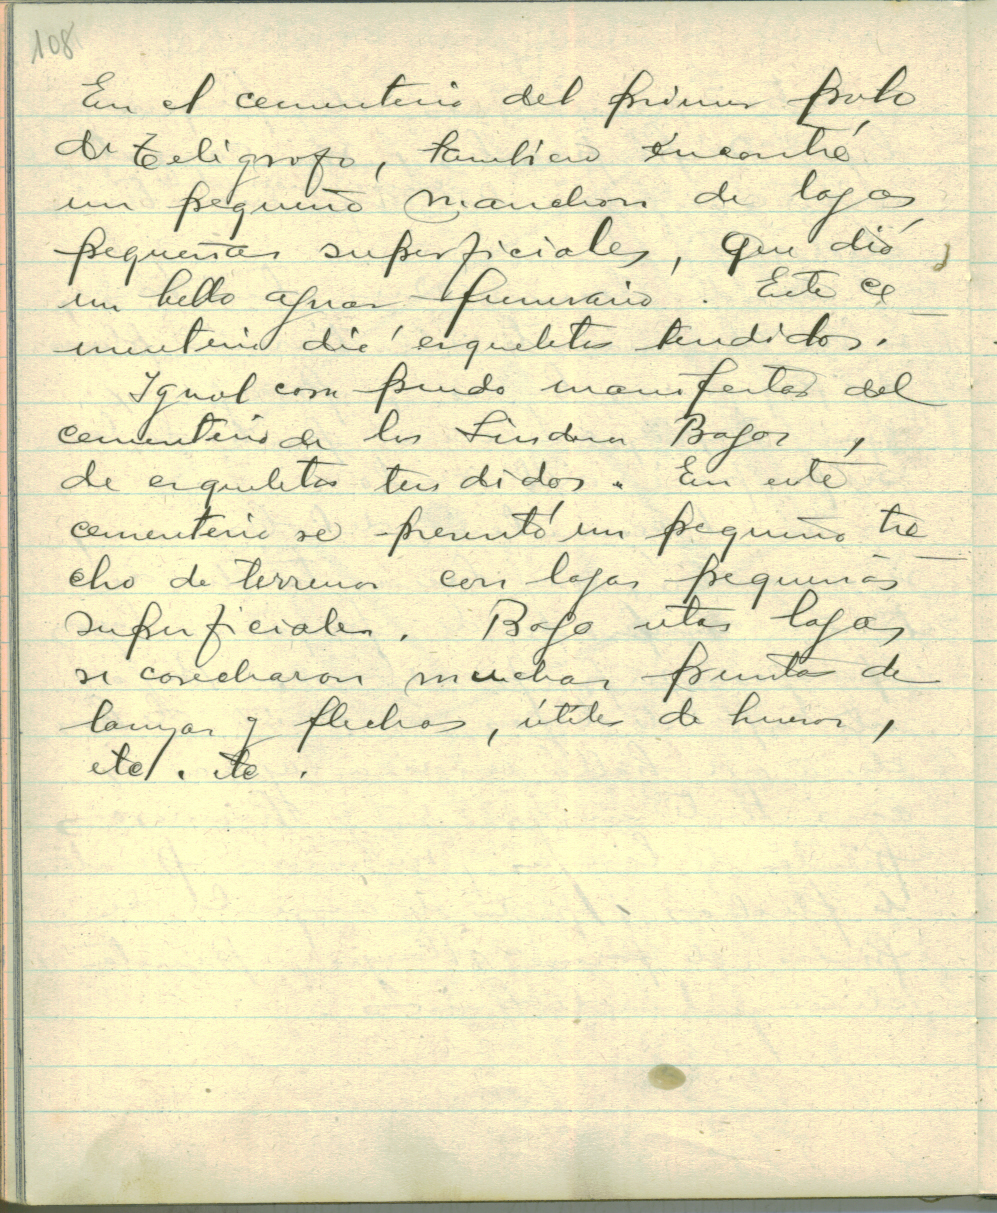 108
En el cementerio del primer palo
de Telégrafo, tambien encontré
un pequeño manchon de lajas
pequeñas superficiales, que dió
un bello ajuar funerario. Este ce
menterio dió esqueletos tendidos.
Igual cosa puedo manifestar del
cementerio de los Bajos,
de esqueletos tendidos. En este
cementerio se presentó un pequeño tre
cho de terreno con lajas pequeñas
superficiales. Bajo estas lajas
se cosecharon muchas puntas de
lanzas y flechas, útiles de huesos,
etc. etc.